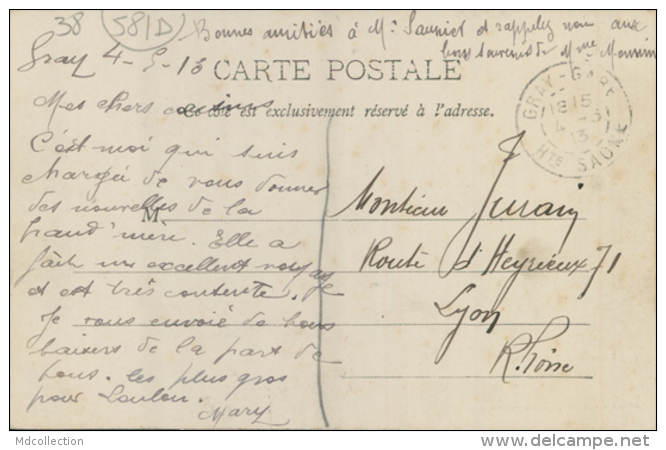 38 581D Bonnes amitiés à Mr Sauniot et rappelez nous aux
bons souvenirs de Mme
Gray 4-5-13
CARTE POSTALE
Mes chers cousins
Ce côté est exclusivement réservé à l'adresse.
GRAY-GARE
18 15
4 -5
13
Hte SAONE
C'est moi qui suis
chargée de vous donner
des nouvelles de la
M
grand'mère. Elle a
fait un excellent voyage
et est très contente.
Je vous envoie de bons
baisers de la part de
tous. les plus gros
pour Loulou.
Mary
Monsieur
Route d'Heyrieux 71
Lyon
Rhône
Mdcollection
delcampe.net